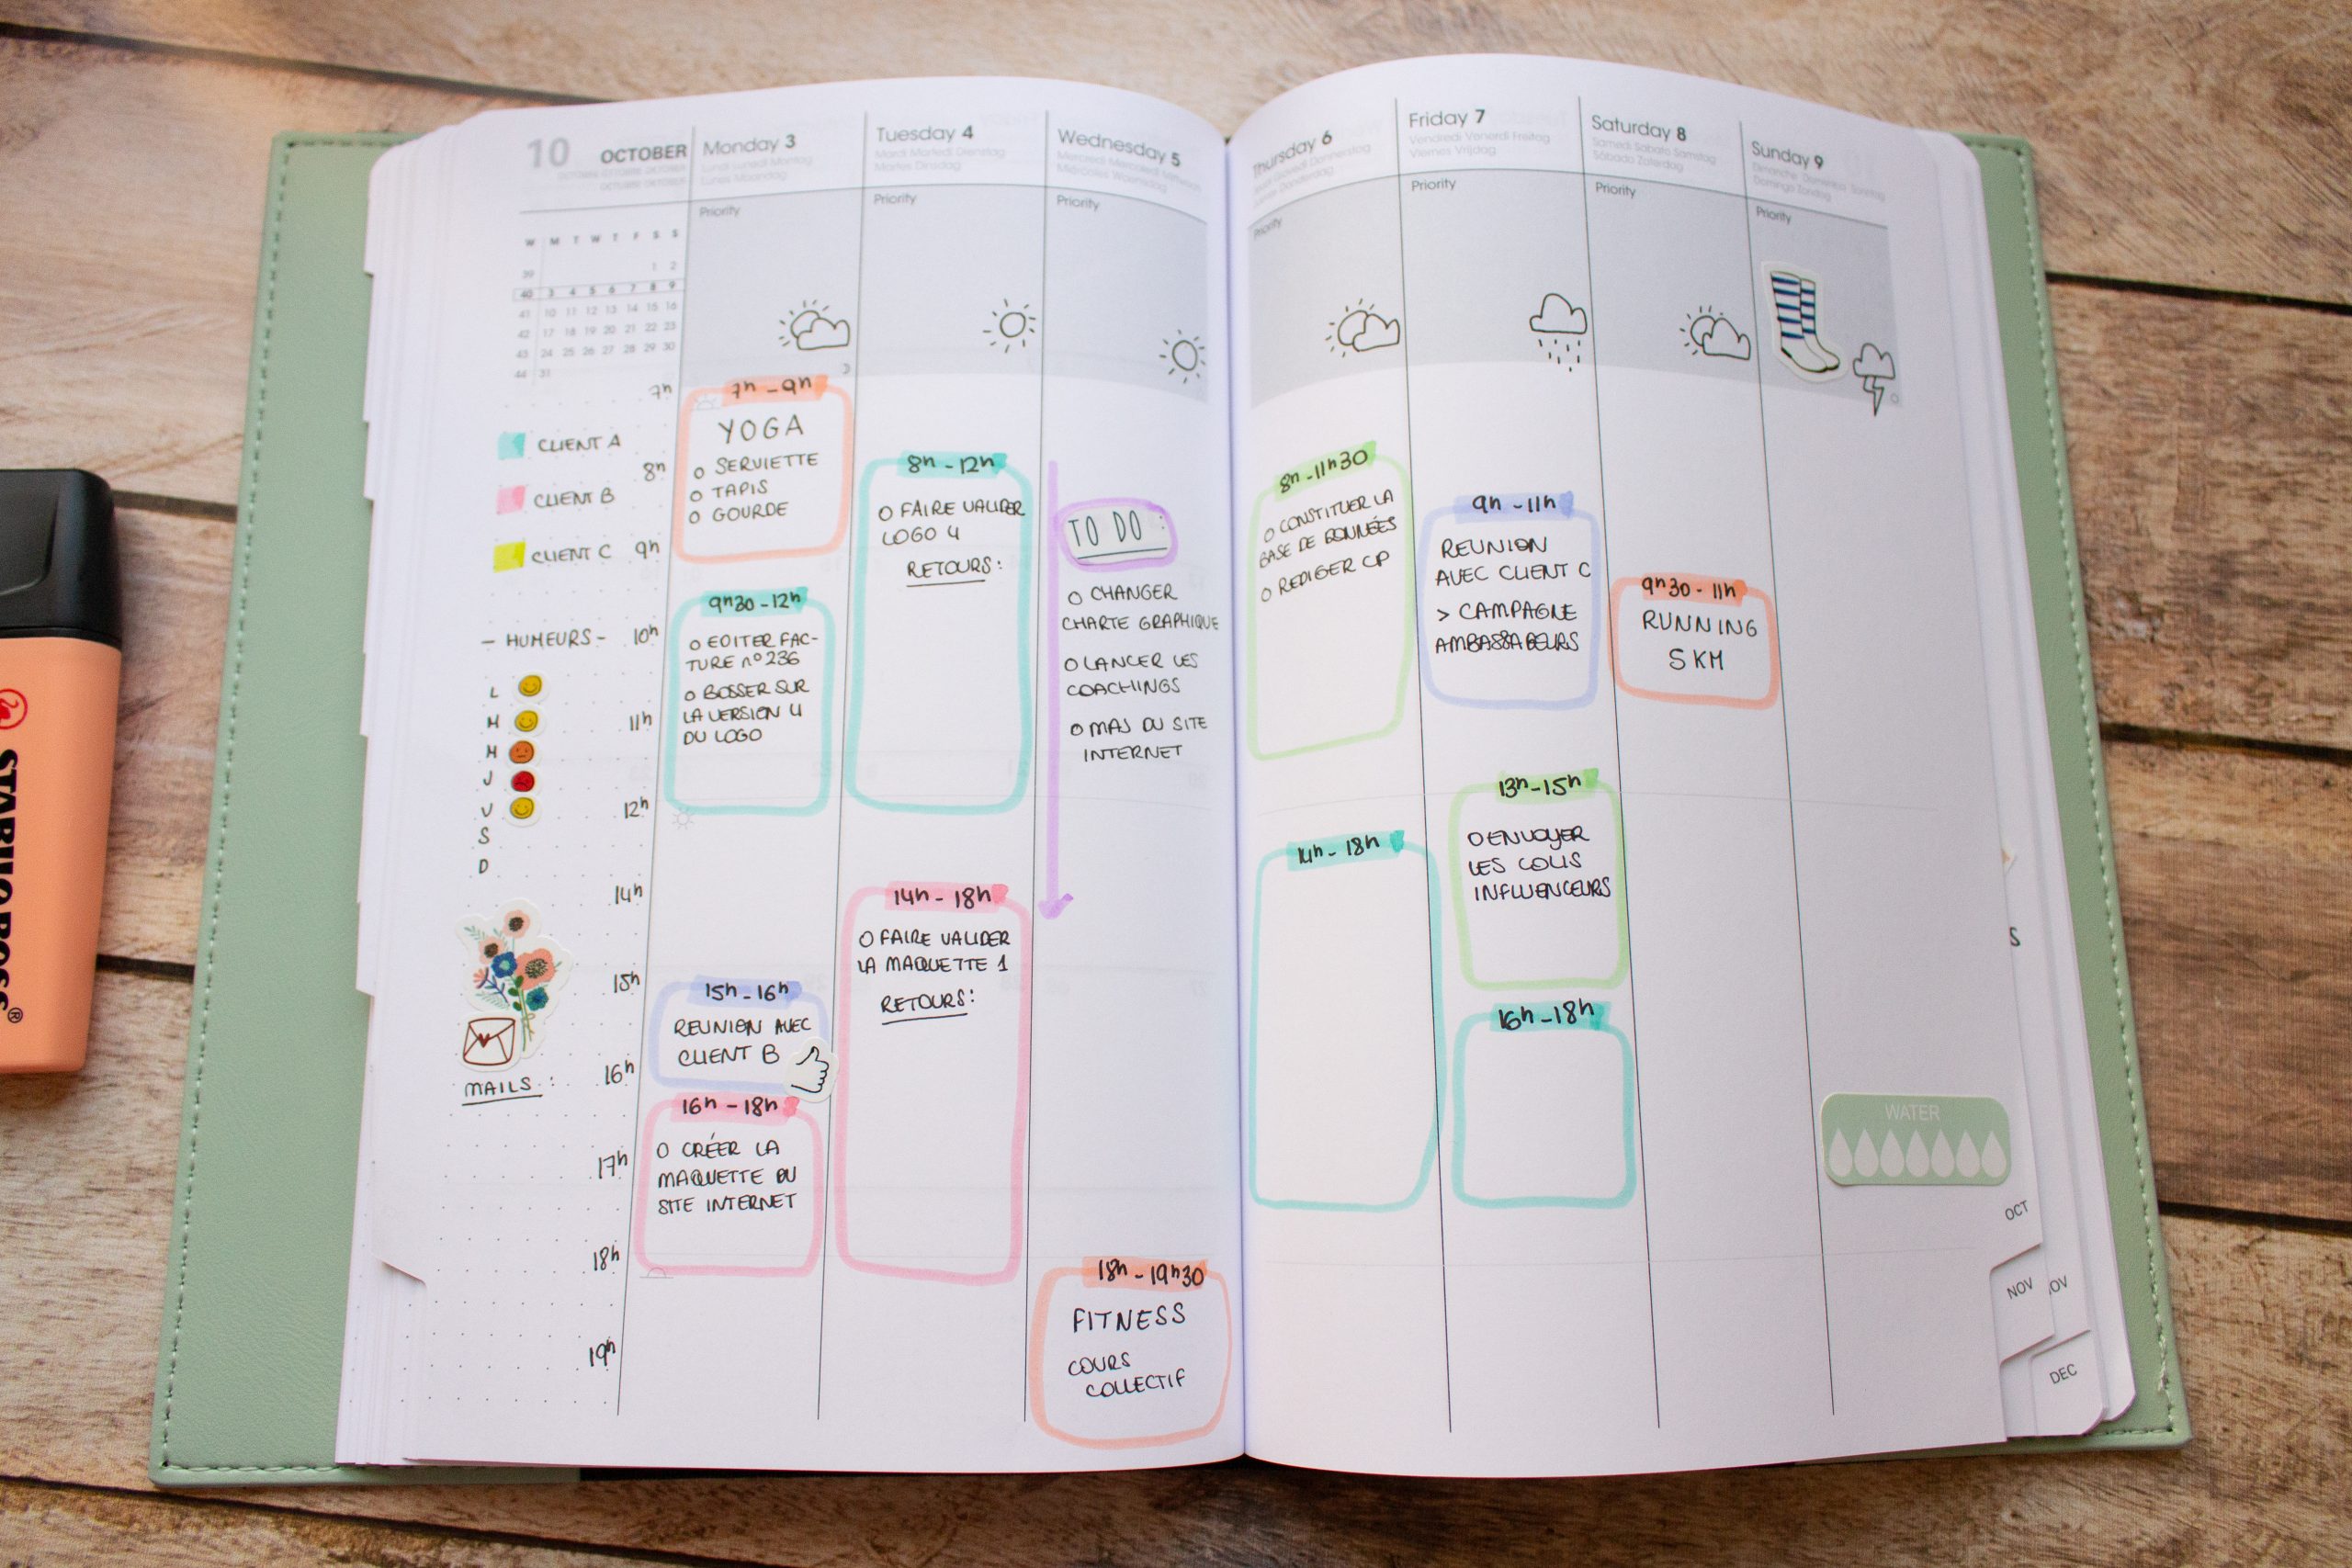 10 OCTOBER
Monday 3
Lundi Lunedì Montag
Lunes Maandag
Priority
Tuesday 4
Mardi Martedì Dienstag
Martes Dinsdag
Priority
Wednesday 5
Mercredi Mercoledì Mittwoch
Miércoles Woensdag
Priority
Thursday 6
Priority
Friday 7
Vendredi Venerdì Freitag
Viernes Vrijdag
Priority
Saturday 8
Samedi Sabato Samstag
Sábado Zaterdag
Priority
Sunday 9
Dimanche Domenica Sonntag
Domingo Zondag
Priority
W M T W T F S S
39 1 2
40 3 4 5 6 7 8 9
41 10 11 12 13 14 15 16
42 17 18 19 20 21 22 23
43 24 25 26 27 28 29 30
44 31
7h
CLIENT A
8h
CLIENT B
CLIENT C
9h
- HUMEURS -
10h
L
M
11h
M
J
V
12h
S
D
14h
15h
16h
MAILS :
17h
18h
19h
7h - 9h
YOGA
O SERVIETTE
O TAPIS
O GOURDE
9h30 - 12h
O EDITER FAC-
TURE n°236
O BOSSER SUR
LA VERSION 4
DU LOGO
15h - 16h
REUNION AVEC
CLIENT B
16h - 18h
O CRÉER LA
MAQUETTE DU
SITE INTERNET
8h - 12h
O FAIRE VALIDER
LOGO 4
RETOURS :
14h - 18h
O FAIRE VALIDER
LA MAQUETTE 1
RETOURS :
TO DO :
O CHANGER
CHARTE GRAPHIQUE
O LANCER LES
COACHINGS
O MAJ DU SITE
INTERNET
18h - 19h30
FITNESS
COURS
COLLECTIF
8h - 11h30
O CONSTITUER LA
BASE DE DONNÉES
O REDIGER CP
14h - 18h
9h - 11h
REUNION
AVEC CLIENT C
> CAMPAGNE
AMBASSADEURS
13h - 15h
O ENVOYER
LES COLIS
INFLUENCEURS
16h - 18h
9h30 - 11h
RUNNING
5 KM
WATER
OCT
NOV
OV
DEC
S
STABILO BOSS®